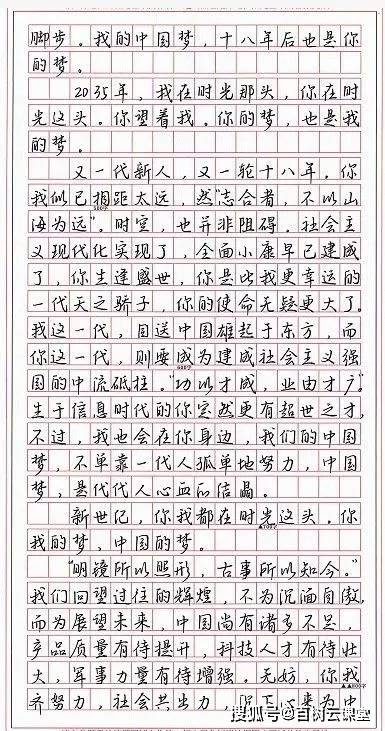 脚步。我的中国梦，十八年后也是你
的梦。
2035年，我在时光那头，你在时
光这头。你望着我。你的梦，也是我
的梦。
又一代新人，又一轮十八年。你
我似已相距太远，然“志合者，不以山
海为远”。时空，也并非阻碍。社会主
义现代化实现了，全面小康早已建成
了，你生逢盛世，你是比我更幸运的
一代天之骄子，你的使命无疑更大了。
我这一代，目送中国雄起于东方，而
你这一代，则要成为建成社会主义强
国的中流砥柱。“功以才成，业由才广”。
生于信息时代的你定然更有超世之才，
不过，我也会在你身边，我们的中国
梦，不单靠一代人孤单地努力，中国
梦，是代代人心血的结晶。
新世纪，你我都在时光这头。你
我的梦，中国的梦。
“明镜所以照形，古事所以知今。”
我们回望过往的辉煌，不为沉湎自傲，
而为展望未来，中国尚有诸多不足，
产品质量有待提升，科技人才有待壮
大，军事力量有待增强。无妨，你我
齐努力，社会共出力，为中
500字
600字
▲700字
▲800字
搜狐号@百树云课堂